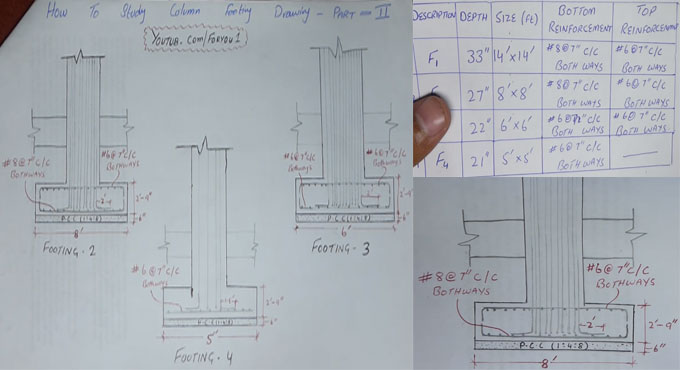 HOW TO STUDY COLUMN FOOTING DRAWING - PART - II
YOUTUB.COM/FORYOU1
#8@7"C/C
BOTHWAYS
#6@7"C/C
BOTHWAYS
2'
2'-9"
6"
P.C.C (1:4:8)
8'
FOOTING - 2
#6@7"C/C
BOTHWAYS
#6@7"C/C
BOTHWAYS
2'-9"
6"
P.C.C (1:4:8)
6'
FOOTING - 3
#6@7"C/C
BOTHWAYS
2'-9"
6"
P.C.C (1:4:8)
5'
FOOTING - 4
DESCRIPTION DEPTH SIZE (FE) BOTTOM REINFORCEMENT TOP REINFORCEMENT
F1 33" 14'x14' #8@7"C/C BOTH WAYS #6@7"C/C BOTH WAYS
27" 8'x8' #8@7"C/C BOTH WAYS #6@7"C/C BOTH WAYS
22" 6'x6' BOTH WAYS #6@7"C/C BOTH WAYS
F4 21" 5'x5' #6@7"C/C BOTH WAYS
#8@7"C/C
BOTHWAYS
#6@7"C/C
BOTHWAYS
2'
2'-9"
6"
P.C.C (1:4:8)
8'